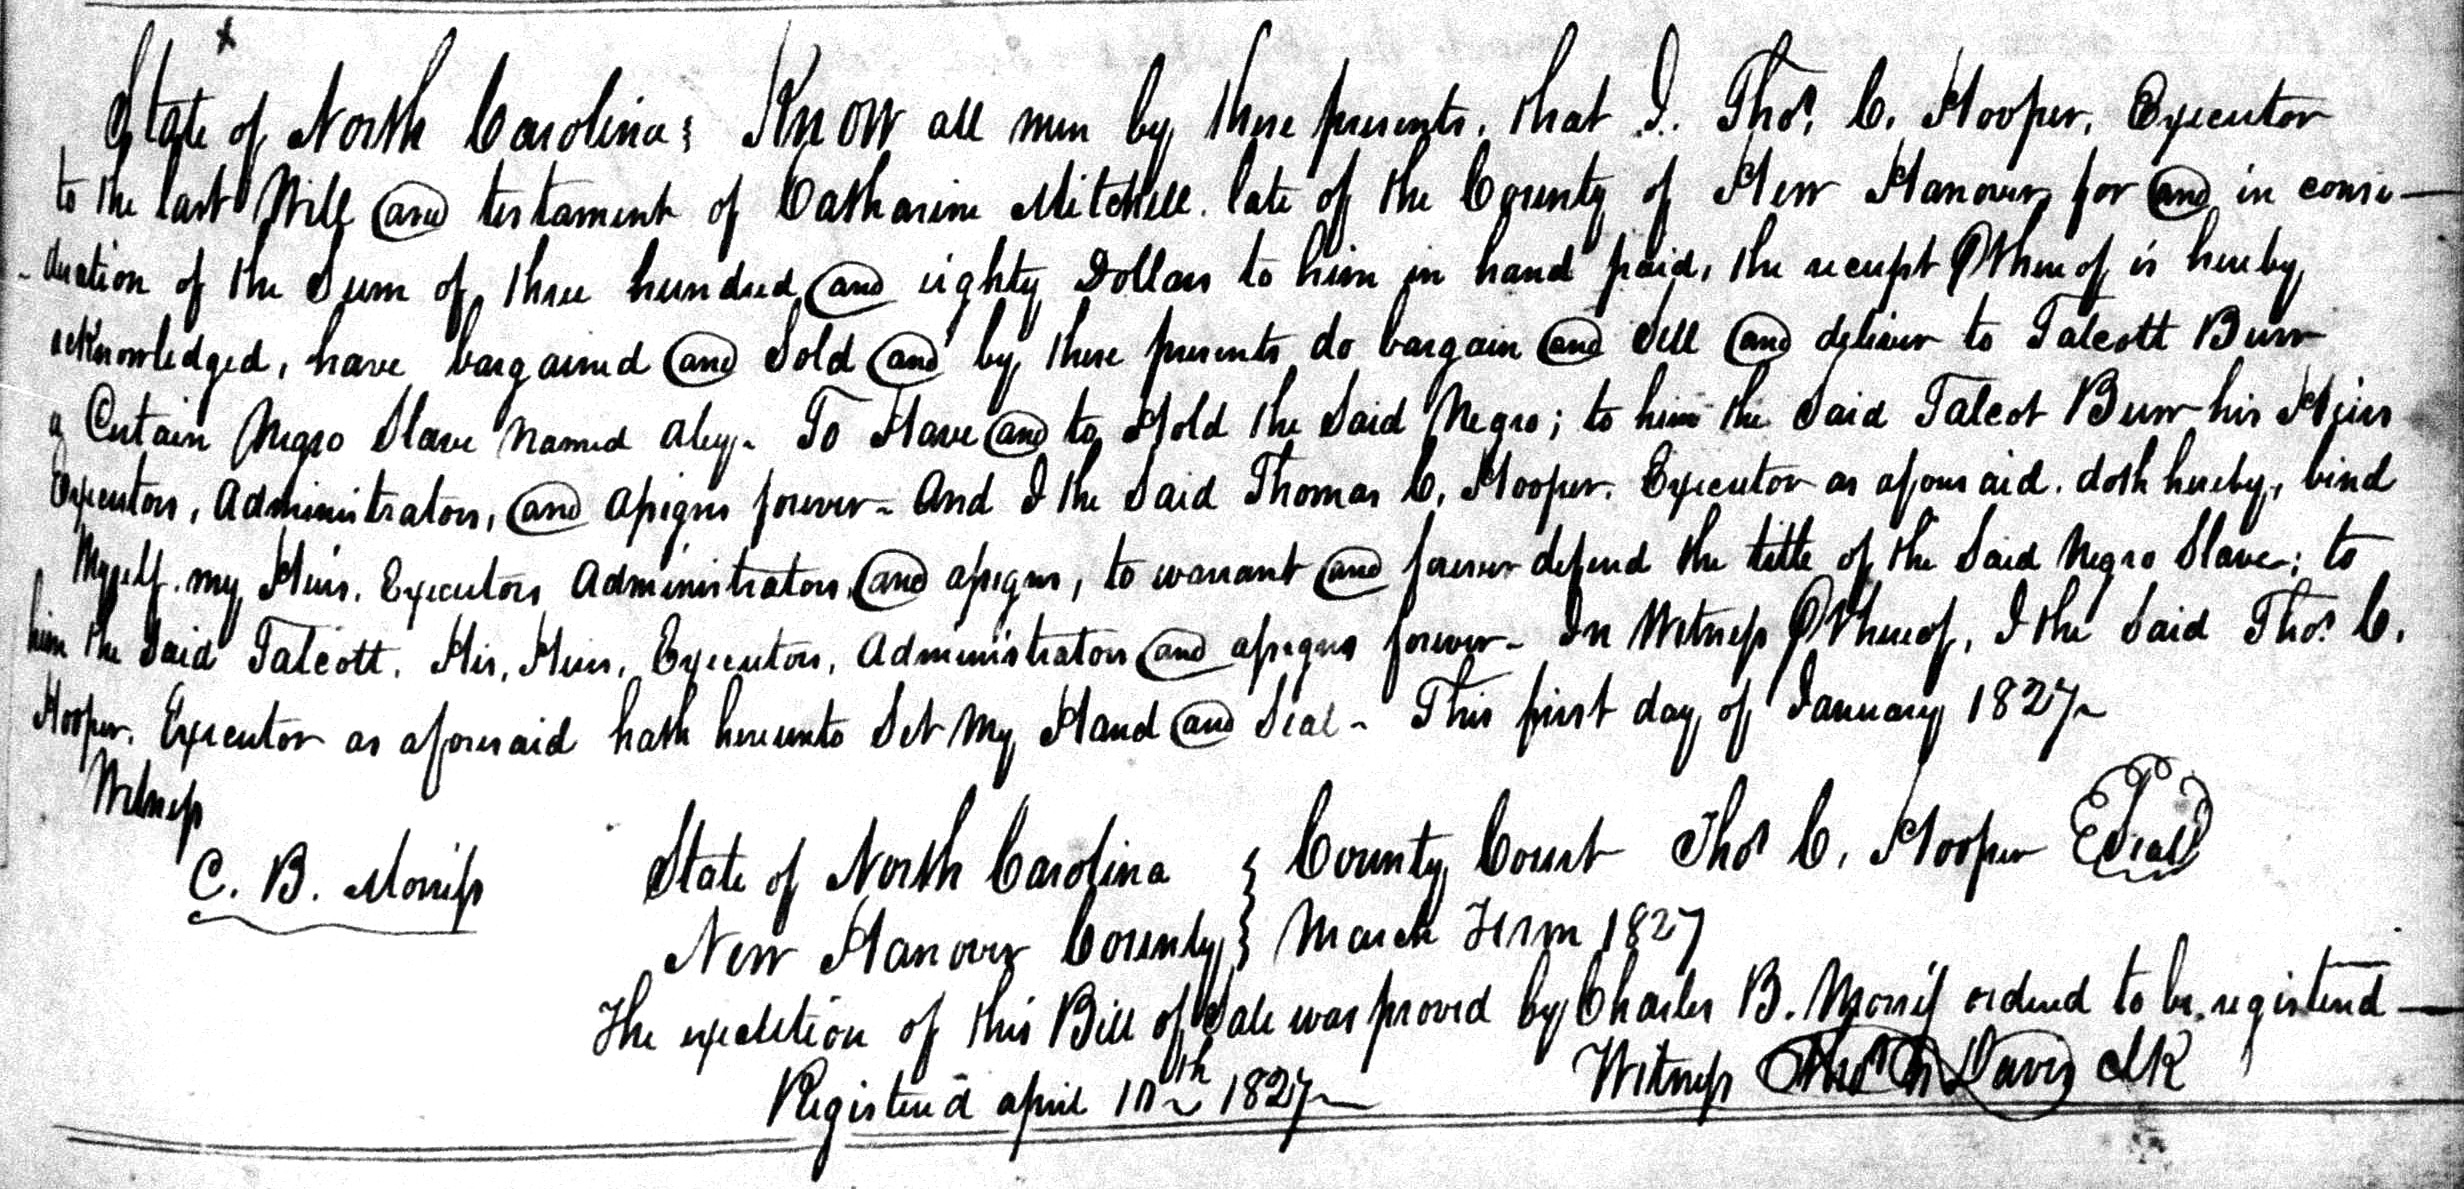 State of North Carolina; Know all men by these presents, that I. Thos. C. Hooper, Executor
to the last Will and testament of Catharine Mitchell. late of the County of New Hanover for and in consi-
-deration of the Sum of three hundred and eighty Dollars to him in hand paid, the receipt Whereof is hereby
acknowledged, have bargained and Sold and by these presents do bargain and Sell and deliver to Talcott Burr
a Certain Negro Slave Named Aley. To Have and to Hold the Said Negro; to him the Said Talcot Burr his Heirs
Executors, Administrators, and assigns forever - And I the Said Thomas C. Hooper. Executor as aforesaid. doth hereby, bind
Myself. my Heirs. Executors Administrators, and assigns, to warrant and forever defend the title of the Said Negro Slave; to
him the Said Talcott. His, Heirs, Executors, Administrators and assigns forever - In Witness Whereof, I the Said Thos. C.
Hooper. Executor as aforesaid hath hereunto Set My Hand and Seal - This first day of January 1827
Witness
C. B. Morriss
Thos C. Hooper Seal
State of North Carolina } County Court
New Hanover County } March Term 1827
The execution of this Bill of Sale was proved by Charles B. Morris ordered to be registered
Witness Davis Clk
Registered april 1827